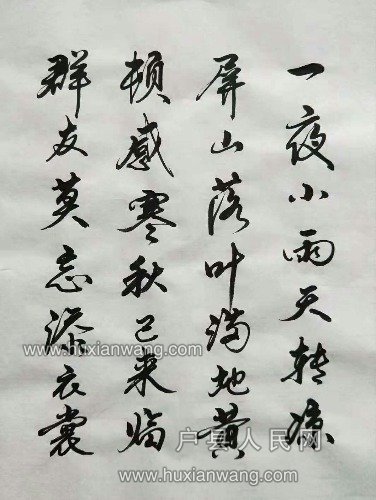 一夜小雨天转凉
屏山落叶满地黄
顿感寒秋已来临
群友莫忘添衣裳
www.huxianwang.com
www.huxianwang.com
户县人民网
www.huxianwang.com